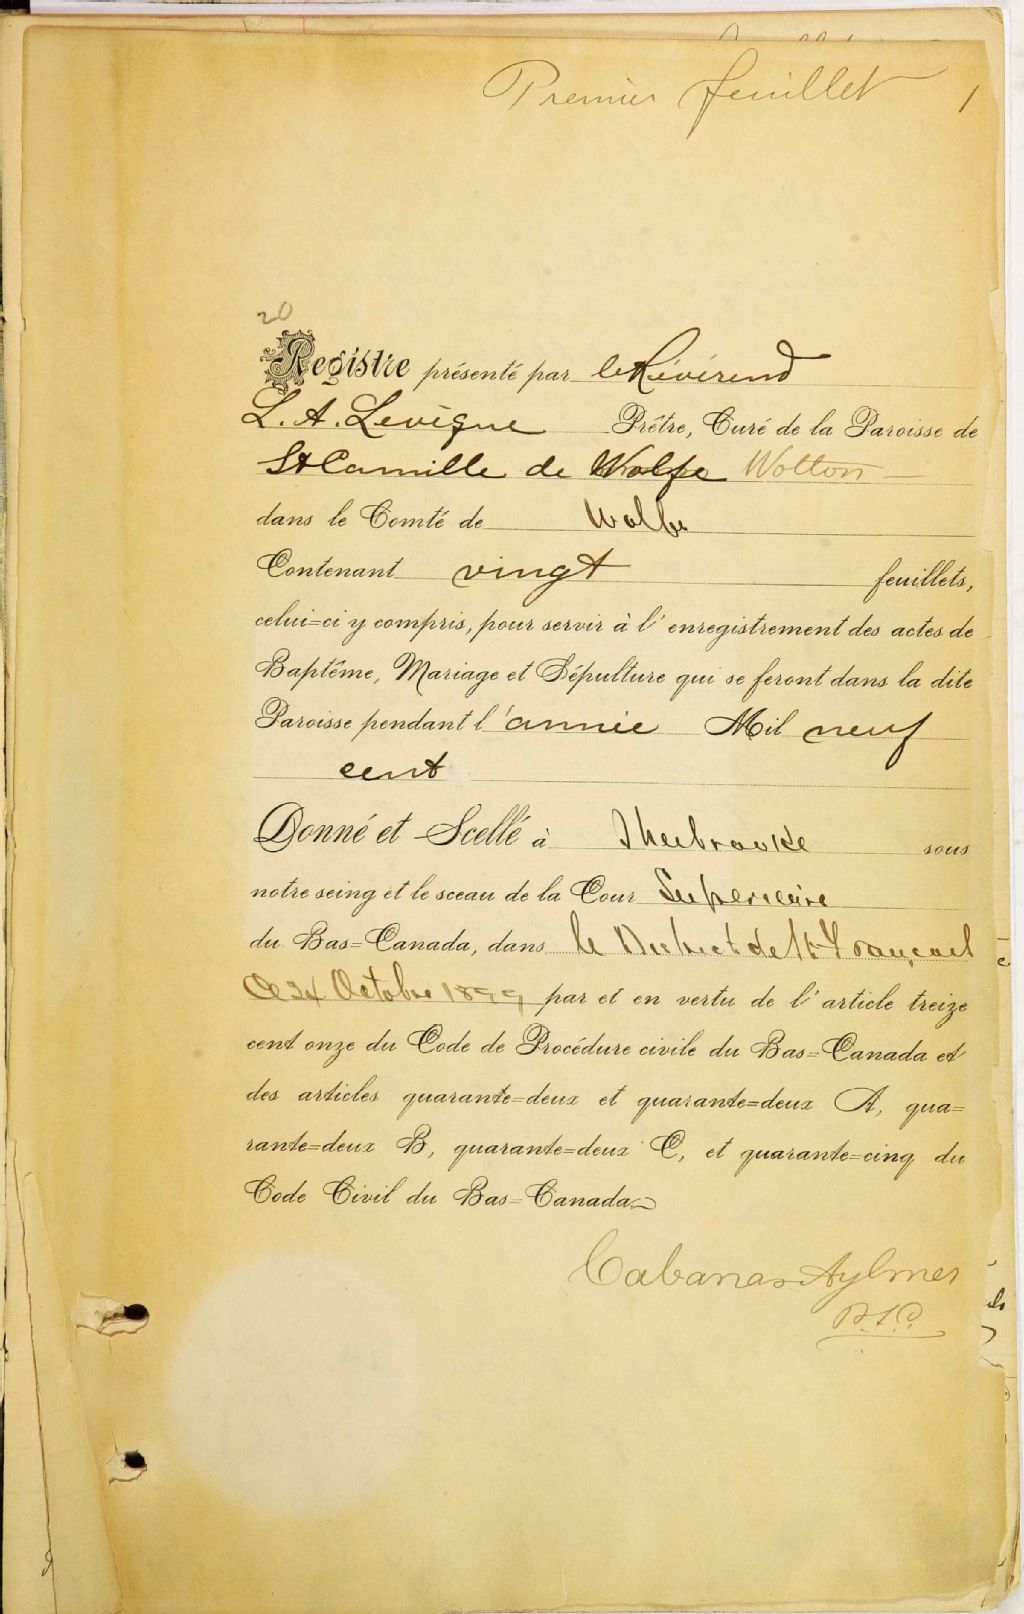 Premier feuillet 1
20
Registre présenté par le Révérend
L. A. Levêque Prêtre, Curé de la Paroisse de
St Camille de Wolfe Wotton
dans le Comté de Wolfe
Contenant vingt feuillets,
celui=ci y compris, pour servir à l'enregistrement des actes de
Baptême, Mariage et Sépulture qui se feront dans la dite
Paroisse pendant l'année Mil neuf
cent
Donné et Scellé à Sherbrooke sous
notre seing et le sceau de la Cour Supérieure
du Bas=Canada, dans le District de St François
Ce 24 Octobre 1899 par et en vertu de l'article treize
cent onze du Code de Procédure civile du Bas=Canada et
des articles quarante=deux et quarante=deux A, qua=
rante=deux B, quarante=deux C, et quarante=cinq du
Code Civil du Bas=Canada
Cabana & Aylmer
P.S.C.